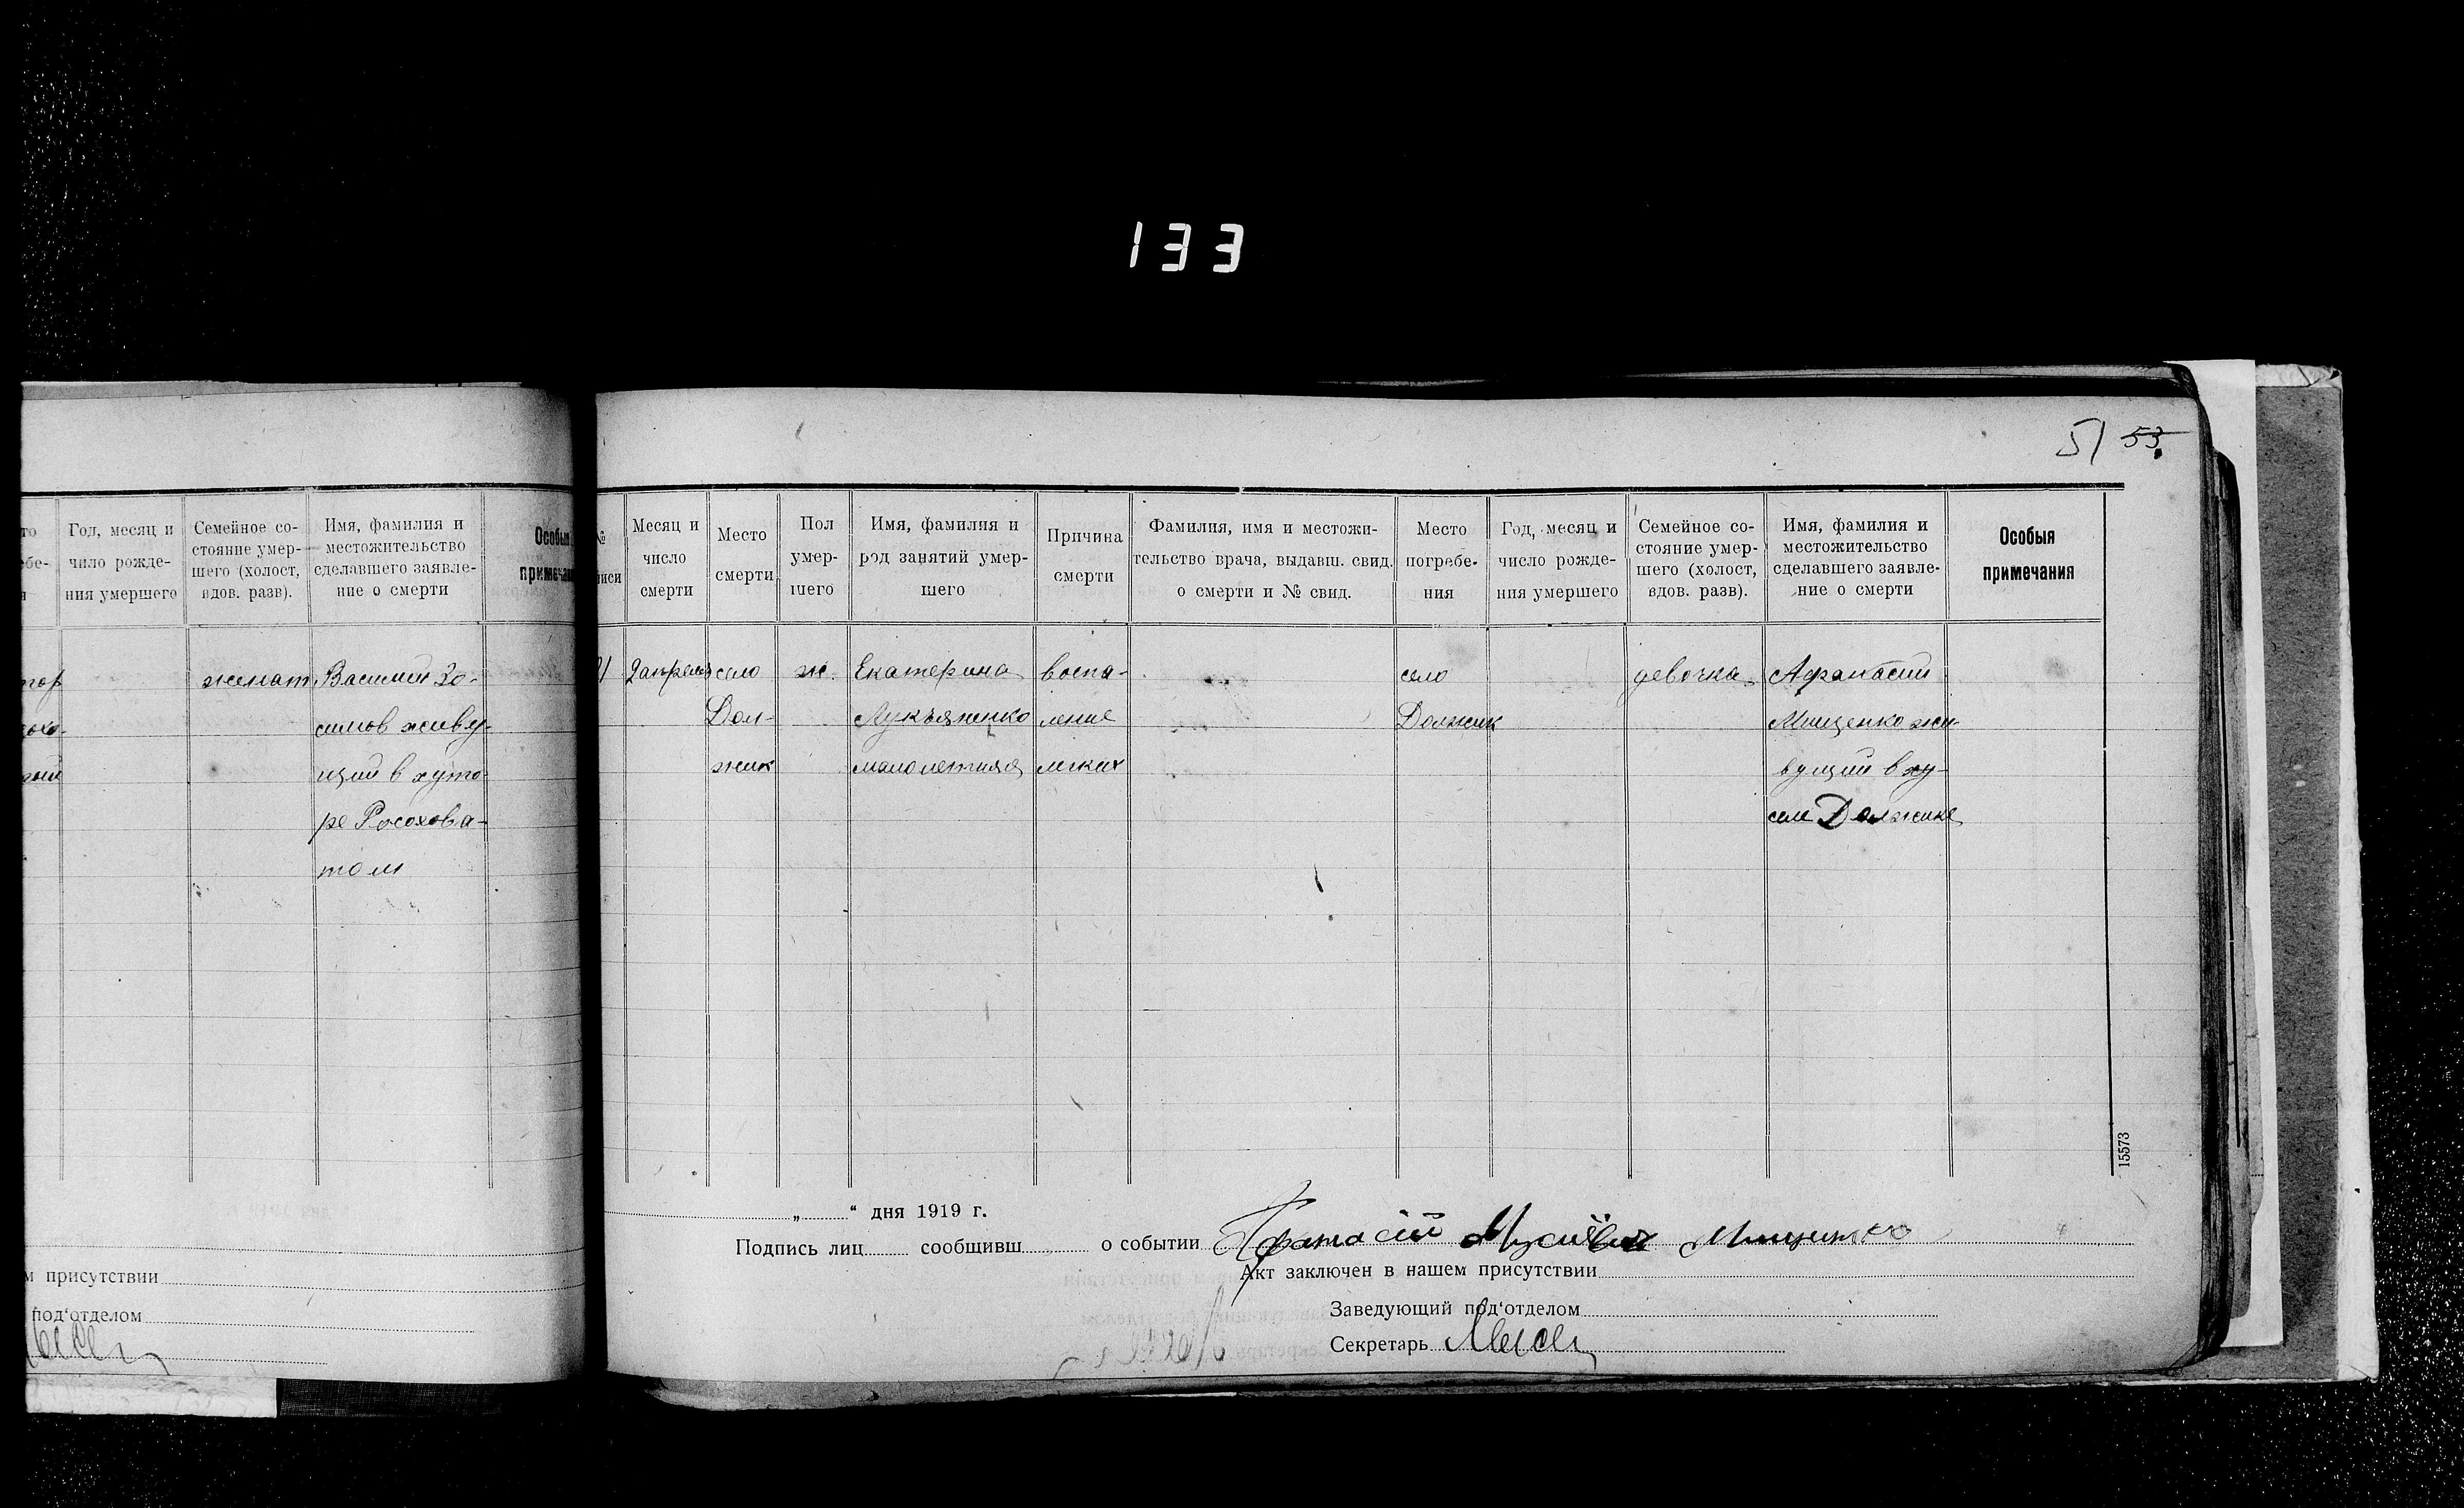 133
51 53.
то
Год, месяц и
число рожде-
ния умершего
Семейное со-
стояние умер-
шего (холост,
вдов. разв).
Имя, фамилия и
местожительство
сделавшего заявле-
ние о смерти
Особыя
женат
Василий Зо-
симов живу-
щий в хуто
ре Росохова-
том
м присутствии
под'отделом
№
Месяц и
число
смерти
Место
смерти
Пол
умер-
шего
Имя, фамилия и
род занятий умер-
шего
Причина
смерти
Фамилия, имя и местожи-
тельство врача, выдавш. свид.
о смерти и № свид.
Место
погребе-
ния
Год, месяц и
число рожде-
ния умершего
Семейное со-
стояние умер-
шего (холост,
вдов. разв).
Имя, фамилия и
местожительство
сделавшего заявле-
ние о смерти
Особыя
примечания
село
Дол-
жик
ж.
Екатерина
Лукъяненко
малолетняя
воспа-
ление
легких
село
Должик
девочка
Афанасий
Мищенко жи
вущий в ху-
селе Должике
15573
„ “ дня 1919 г.
Подпись лиц сообщивш о событии Афанасій Мищенко
Акт заключен в нашем присутствии
Заведующий под'отделом
Секретарь